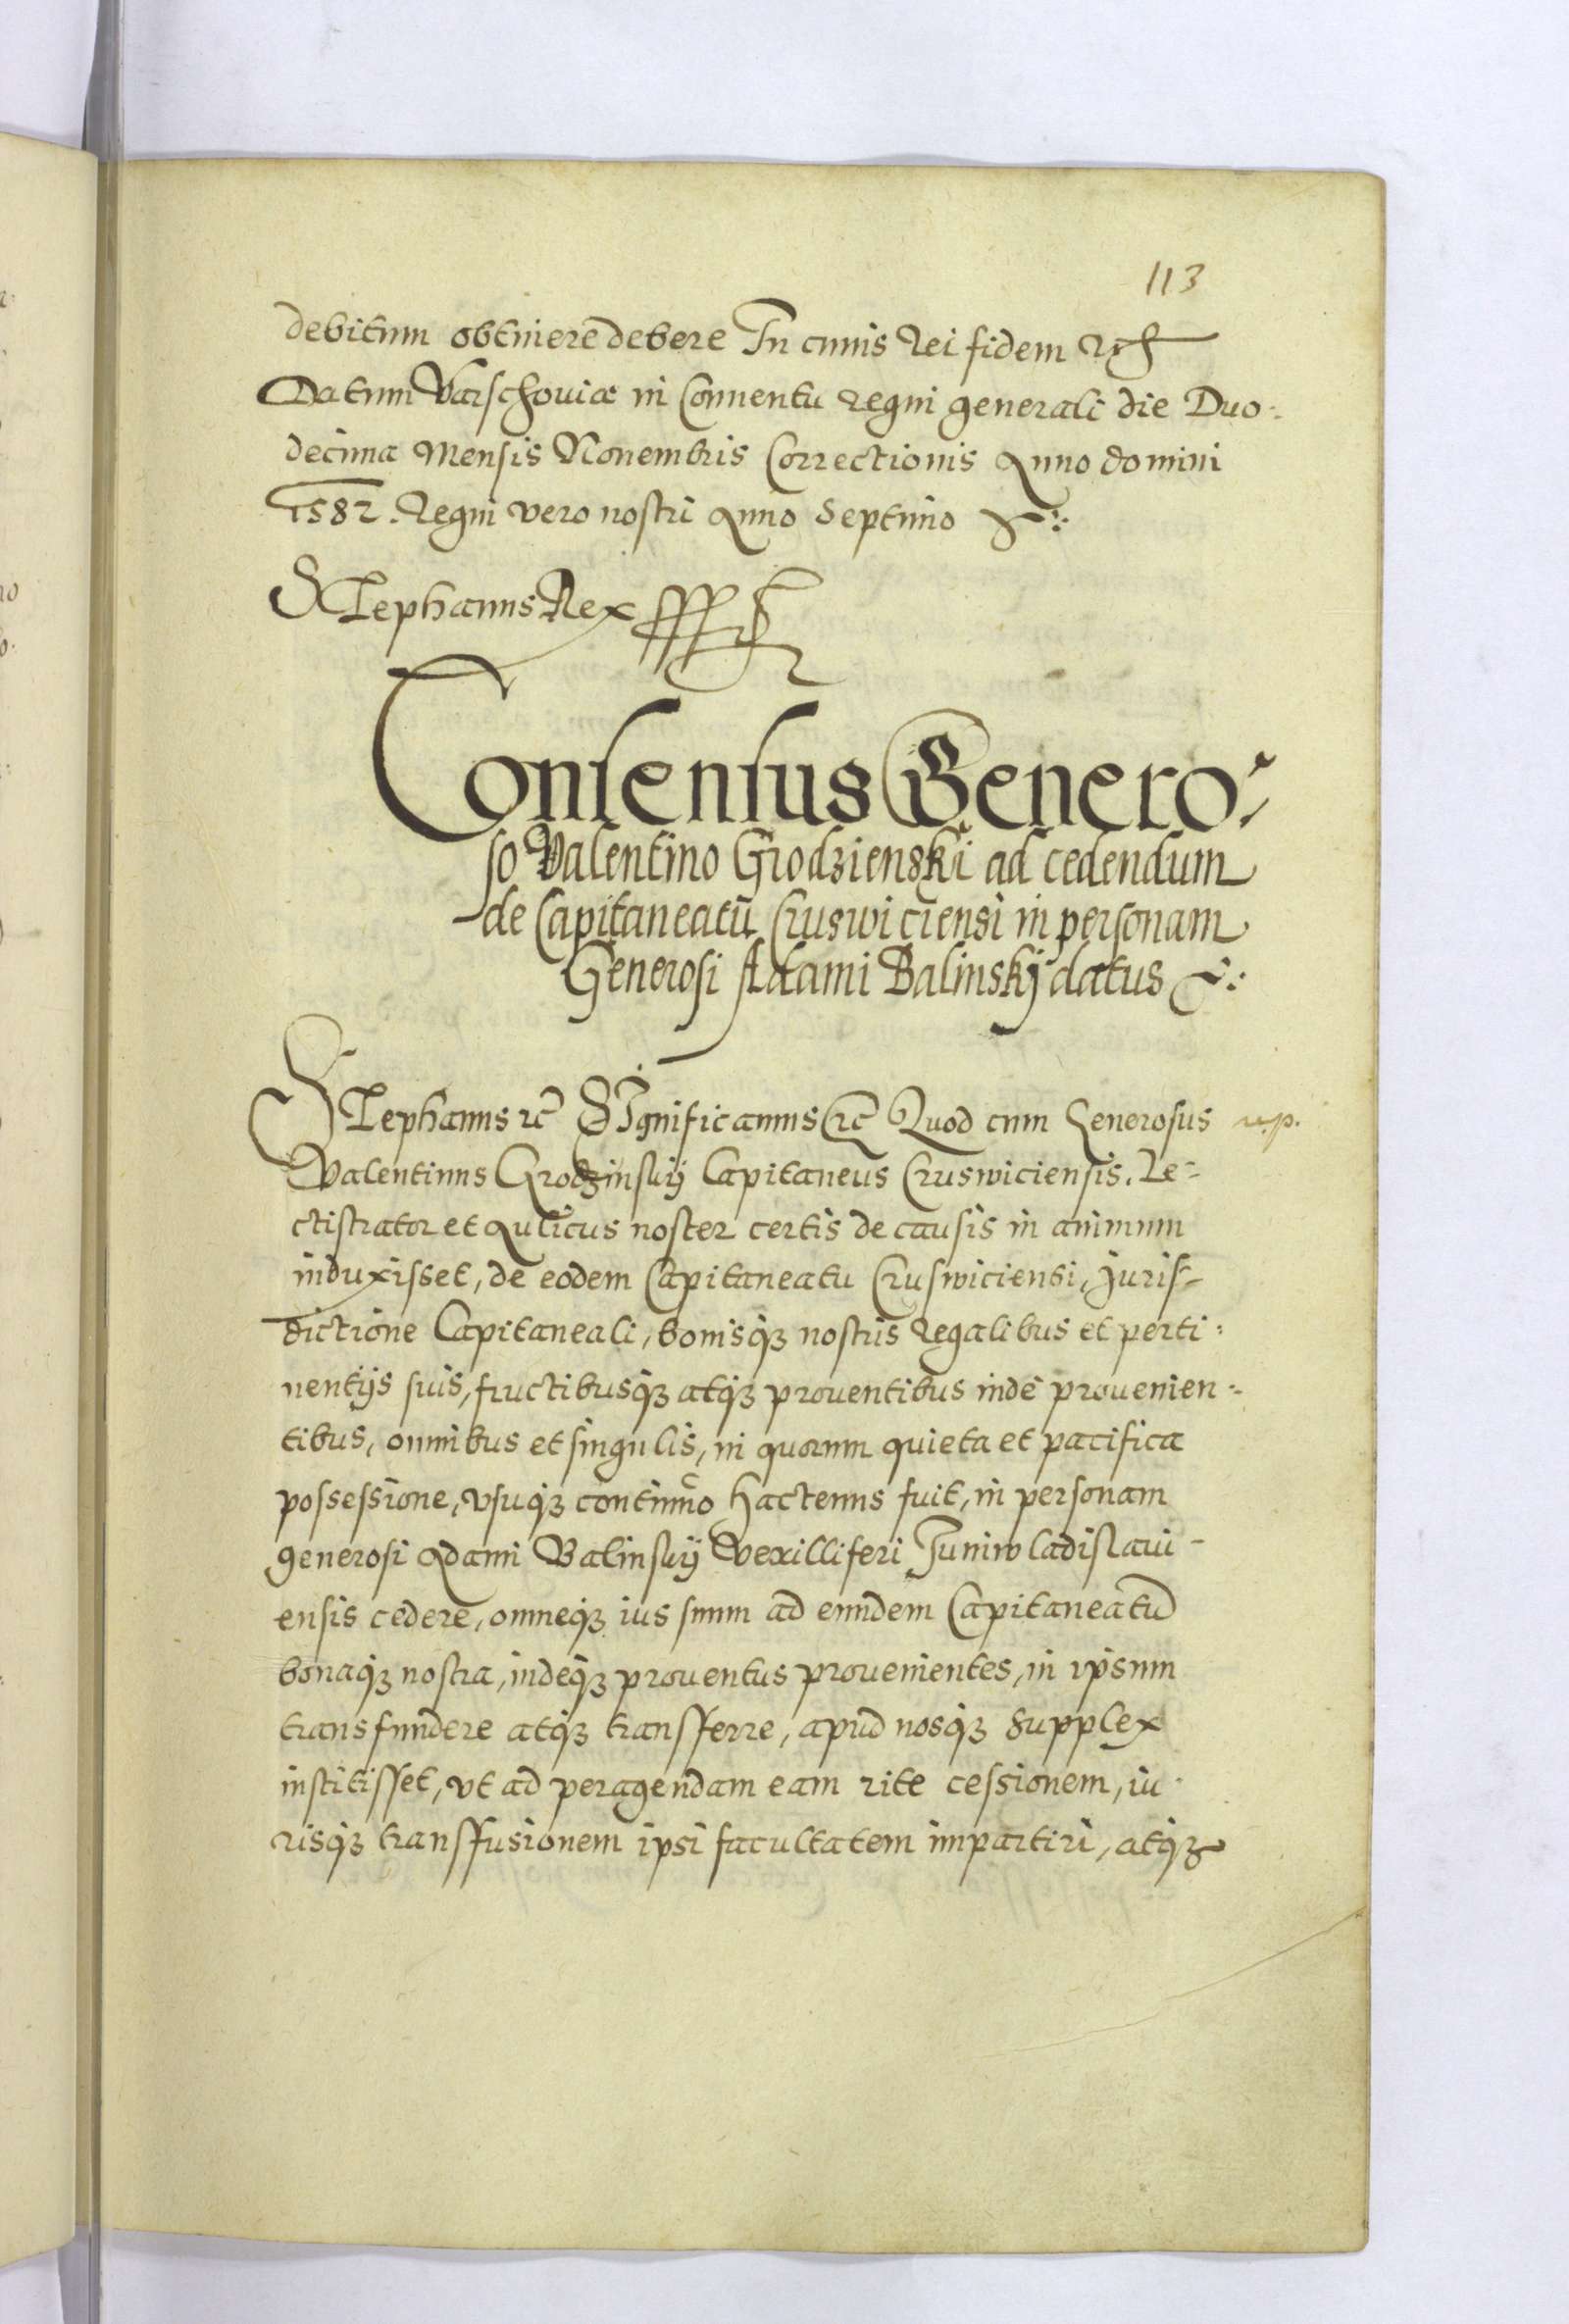 113
debitum obtinere debere In cuius Rei fidem etc
Datum Varschouiæ in Conuentu regni generali die Duo-
decima Mensis Nouembris Correctionis Anno domini
1582. Regni vero nostri Anno Septimo
Stephanus Rex
Consensus Genero-
so Valentino Grodzienski ad cedendum
de Capitaneatū Cruswiciensi in personam
Generosi Adami Balinskÿ datus
Stephanus etc Significamus etc Quod cum Generosus
Valentinus Grodzinskÿ Capitaneus Cruswiciensis. Le-
ctistrator et Aulicus noster certis de causis in animum
induxisset, de eodem Capitaneatu Cruswiciensi, Juris-
dictione Capitaneali, bonisq3 nostris Regalibus et perti-
nentijs suis, fructibusq3 atq3 prouentibus inde prouenien-
tibus, omnibus et singulis, in quorum quieta et pacifica
possessione, vsuq3 continuo hactenus fuit, in personam
generosi Adami Balinskÿ Vexilliferi Juniwladislaui-
ensis cedere, omneq3 ius suum ad eundem Capitaneatū
bonaq3 nostra, indeq3 prouentus prouenientes, in ipsum
transfundere atq3 transferre, apud nosq3 supplex
institisset, vt ad peragendam eam rite cessionem, iu-
risq3 transfusionem ipsi facultatem impartiri, atq3